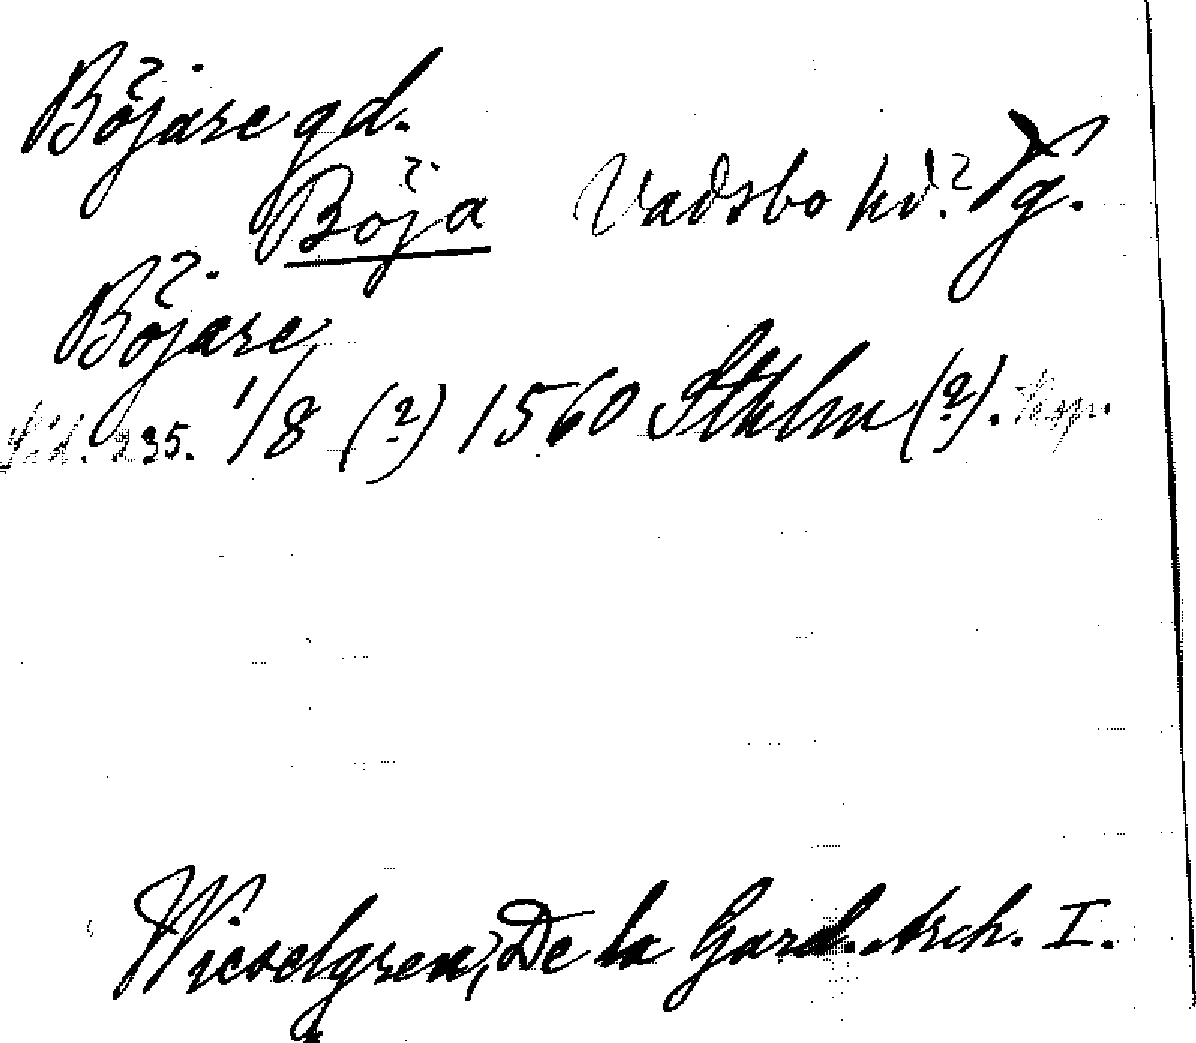 Böjare gd.
Böja Vadsbo hd. Vg.
Böjare
Sid. 235. 1/8 (?) 1560 Sthlm (?). Kop.
Wieselgren, De la Gard. Arch. I.